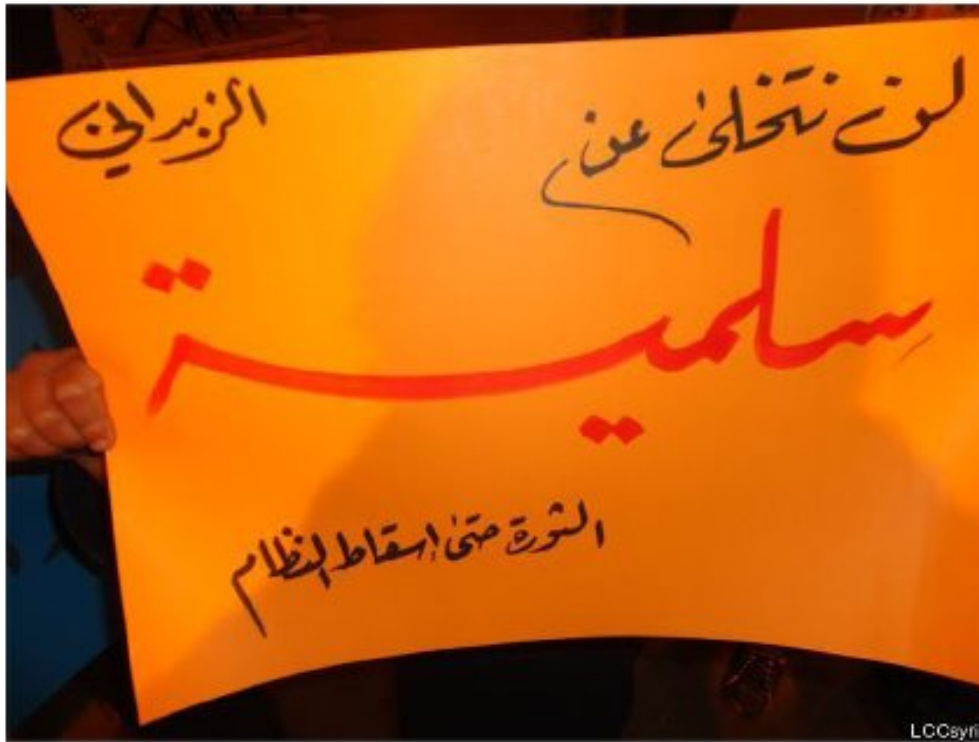 لن نتخلى عن
الزبداني
سلمية
الثورة حتى إسقاط النظام
LCCsyri